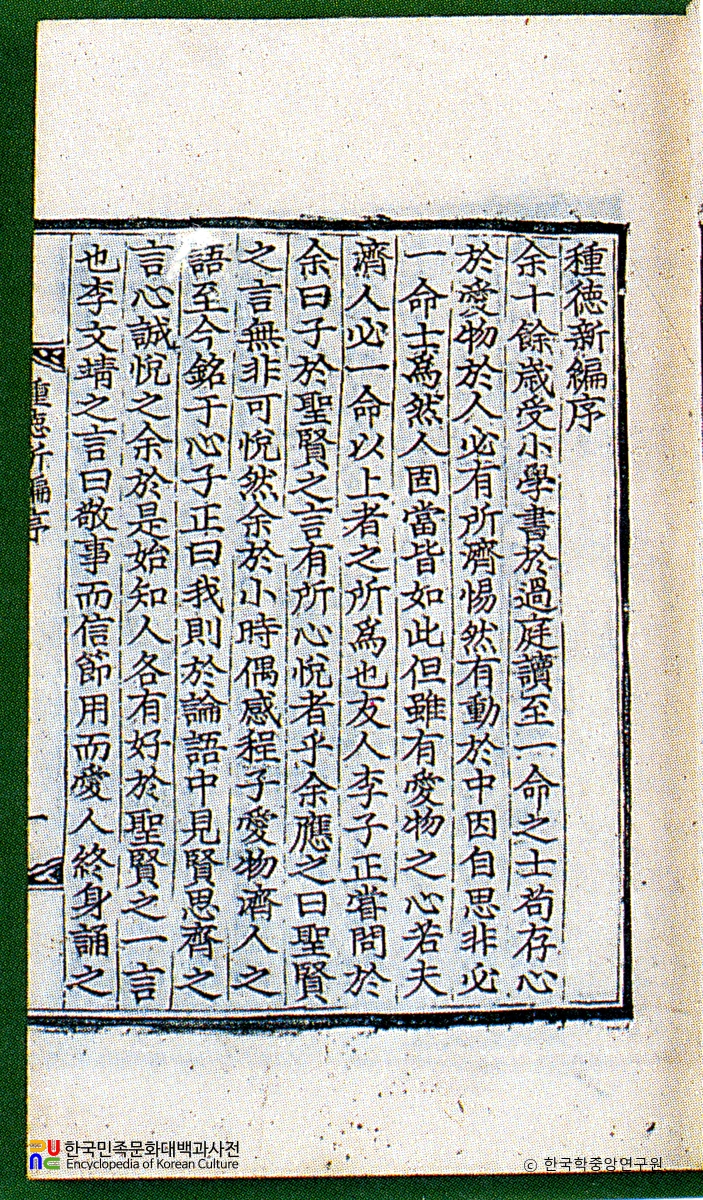 種德新編序
余十餘歲受小學書於過庭讀至一命之士苟存心
於愛物於人必有所濟惕然有動於中因自思非必
一命士爲然人固當皆如此但雖有愛物之心若夫
濟人必一命以上者之所爲也友人李子正嘗問於
余曰子於聖賢之言有所心悅者乎余應之曰聖賢
之言無非可悅然余於小時偶感程子愛物濟人之
語至今銘于心子正曰我則於論語中見賢思齊之
言心誠悅之余於是始知人各有好於聖賢之一言
也李文靖之言曰敬事而信節用而愛人終身誦之
種德新編序
一
한국민족문화대백과사전
Encyclopedia of Korean Culture
© 한국학중앙연구원